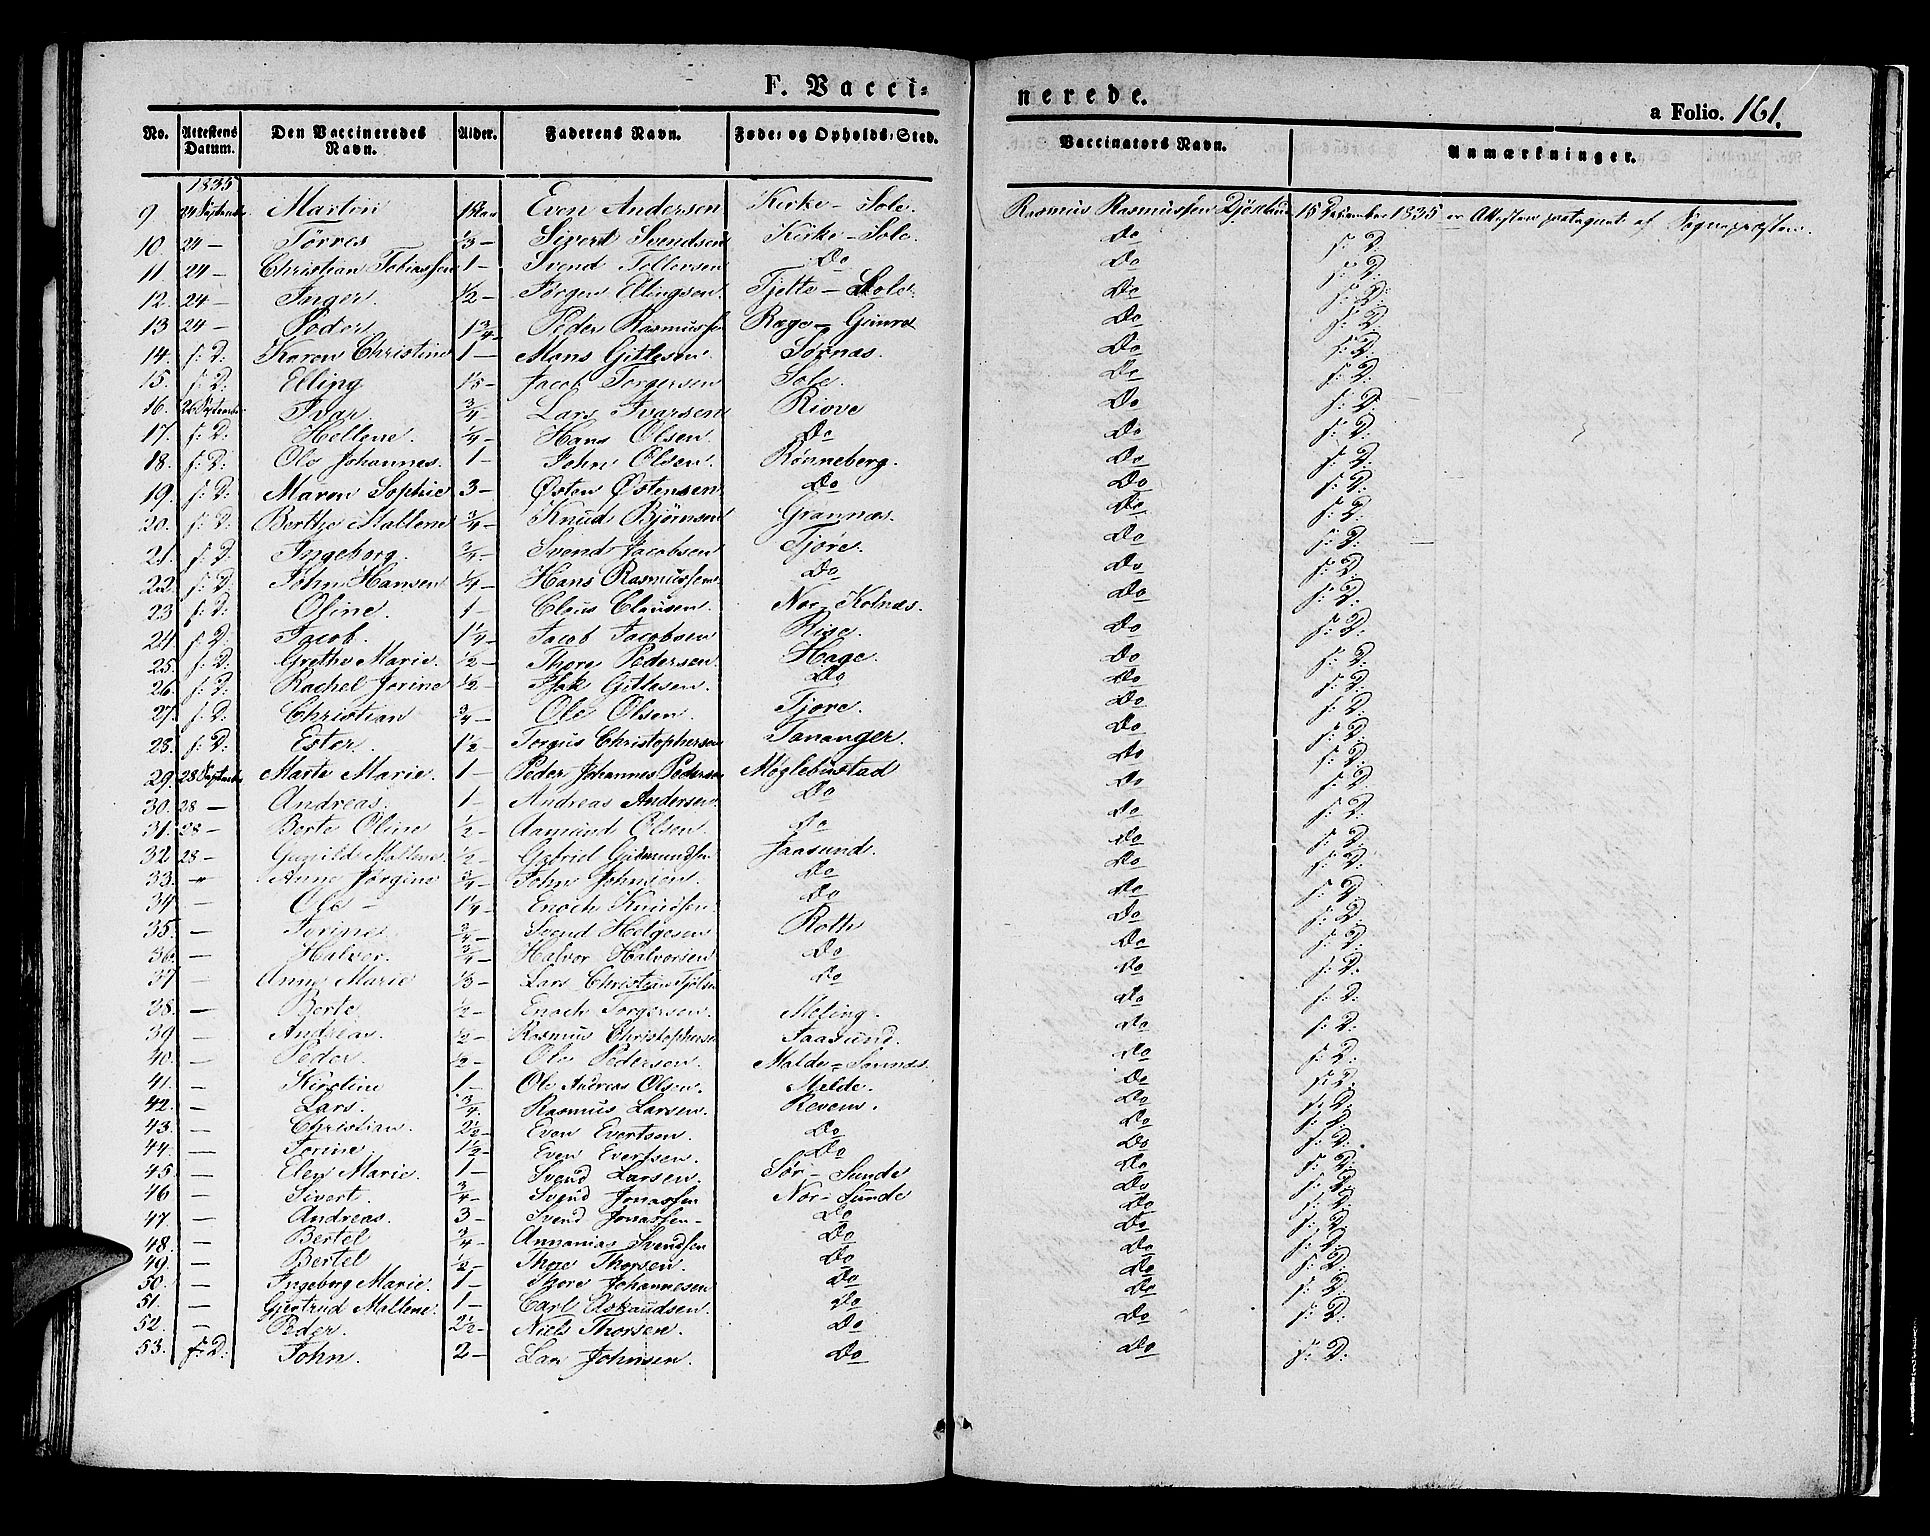 F. Vacci=
nerede.
a Folio. 161.
No. Attestens Datum. Den Vaccineredes Navn. Alder. Faderens Navn. Føde= og Opholds=Sted. Vaccinators Navn. Anmærkninger.
1835
9 24 Septembr. Martin 1 Aar Even Andersen Kirke-Sole. Rasmus Rasmussen 15 December 1835 er Attesten modtaget af Sognepræsten.
10. 24 - Tørres 1/3 - Sivert Svendsen Kirke-Sole. Do f: D:
11. 24 - Christian Tobiassen 1 - Svend Tollevsen Do Do f: D:
12. 24 - Inger. 1/2 - Jørgen Ellingsen. Tjelte - Sole. Do f: D:
13 24 - Peder 1 3/4 - Peder Rasmussen Rage - Do f: D:
14. f: D: Karen Christine 1 - Mons Gitlesen. Sørnæs. Do f: D:
15. f: D: Elling Jacob Torgersen Sole. Do f: D:
16. 26 Septembr. Ivar 3/4 - Lars Ivarsen Do f: D:
17. f: D: Hellene. 1/4 - Hans Olsen. Do Do f: D:
18. f: D: Ole Johannes. 1 - John Olsen. Rønneberg. Do f: D:
19. f: D: Maren Sophie 3 - Østen Østensen Do Do f: D:
20. f: D: Berthe Mallene 3/4 - Knud Bjørnsen Grannæs. Do f: D:
21. f: D: Ingeborg. 3/4 - Svend Jacobsen Tjøre. Do f: D:
22. f: D: John Hansen 1/4 - Hans Rasmussen Do Do f: D:
23 f: D: Oline. 1 - Claus Clausen. Nor-Kolnæs. Do f: D:
24. f: D: Jacob. 1 1/4 - Jacob Jacobsen Rise. Do f: D:
25. f: D: Grethe Marie. 1/2 - Thore Pedersen Hage. Do f: D:
26. f: D: Rachel Jorine 1/2 - Isak Gitlesen. Do Do f: D:
27. f: D: Christian 3/4 - Ole Olsen. Tjøre. Do f: D:
28. f: D: Ester. 1 1/2 - Torgus Christophersen Tananger. Do f: D:
29. 28 Septembr. Marte Marie. 1 - Peder Johannes Pedersen Møglebustad Do f: D:
30. 28 - Andreas. 1 - Andreas Andersen. Do Do f: D:
31. 28 - Berte Oline 1/2 - Aamund Olsen. Do Do f: D:
32 28 - Gunild Mallene. 1/2 - Gabriel Gudmundsen Jaasund. Do f: D:
33. " Anne Jørgine 3/4 - John Johnsen. Do Do f: D:
34 - Ole - 1 1/4 - Enoch Knudsen. Do Do f: D:
35. - Torine 3/4 - Svend Helgesen Roth Do f: D:
36. - Halvor. 3/4 - Halvor Halvorsen Do Do f: D:
37 - Anne Marie 1/3 - Lars Christian Do Do f: D:
38. - Berte 1/2 - Enoch Torgersen. Meling. Do f: D:
39 - Andreas. 1/2 - Rasmus Christophersen Jaasund. Do f: D:
40. - Peder. 1/2 - Ole Pedersen. Malde = Do f: D:
41. - Kirstine 1 - Ole Andreas Olsen. Melde. Do f: D:
42. - Lars. 3/4. Rasmus Larsen. Revem. Do f: D:
43. - Christian. 2 1/2 - Even Evertsen. Do Do f: D:
44. - Torine 1 1/2 - Even Evertsen. Do Do f: D:
45. - Elen Marie. 1 - Svend Larsen. Sør - Sunde Do f: D:
46 - Sivert. 3/4 - Svend Jonassen Nor - Sunde Do f: D:
47. - Andreas. 3 - Svend Jonassen - Do Do f: D:
48. - Bertel 3/4 - Annanias Svendsen Do Do f: D:
49. - Bertel 1/2 - Thore Thorsen. Do Do f: D:
50. - Ingeborg Marie. 1 - Thore Johannesen Do Do f: D:
51. - Gjertrud Mallene. 1 - Carl Do Do f: D:
52. - Peder. 2 1/2 - Niels Thorsen. Do Do f: D:
53. f: D: John. 2 - Lars Johnsen. Do Do f: D: